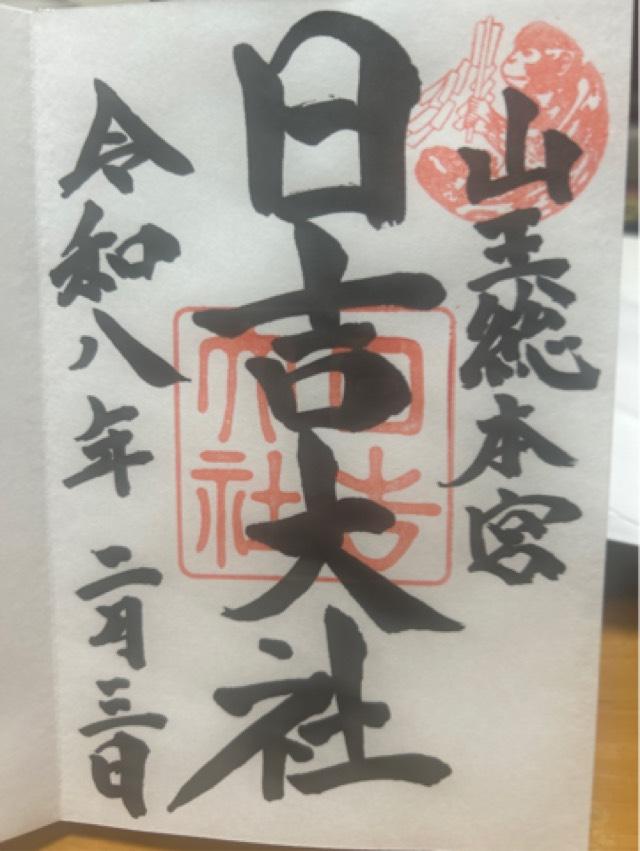 山王総本宮
日吉大社
日吉大社
令和八年二月三日